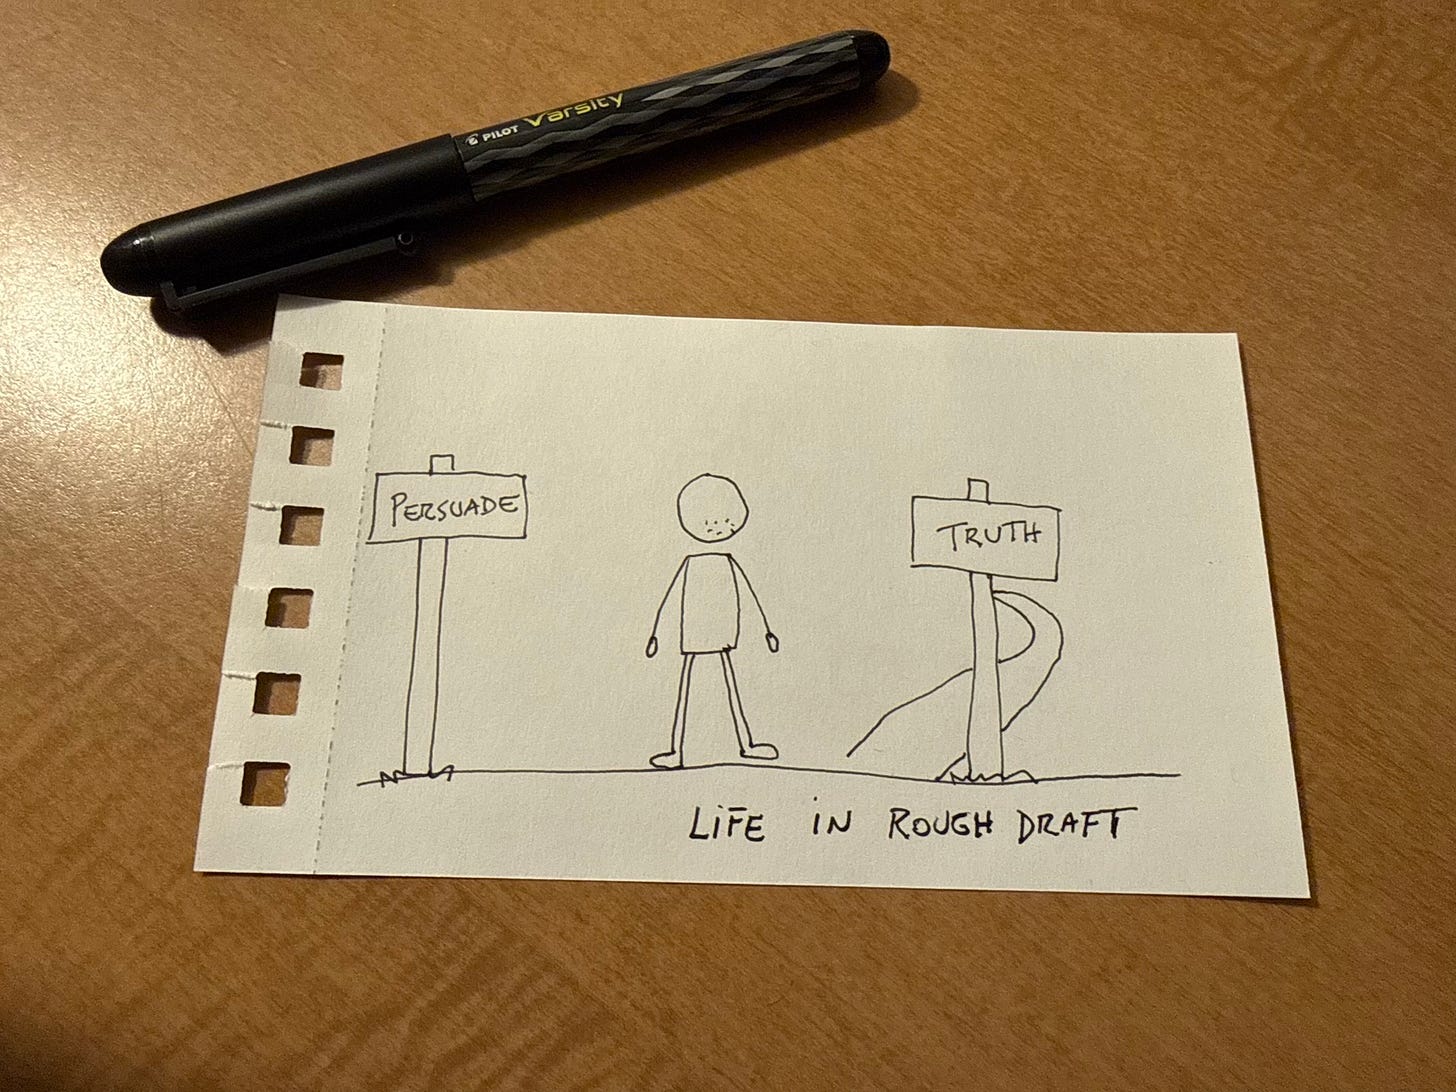 PILOT Varsity
PERSUADE
TRUTH
LiFE iN ROUGH DRAFT